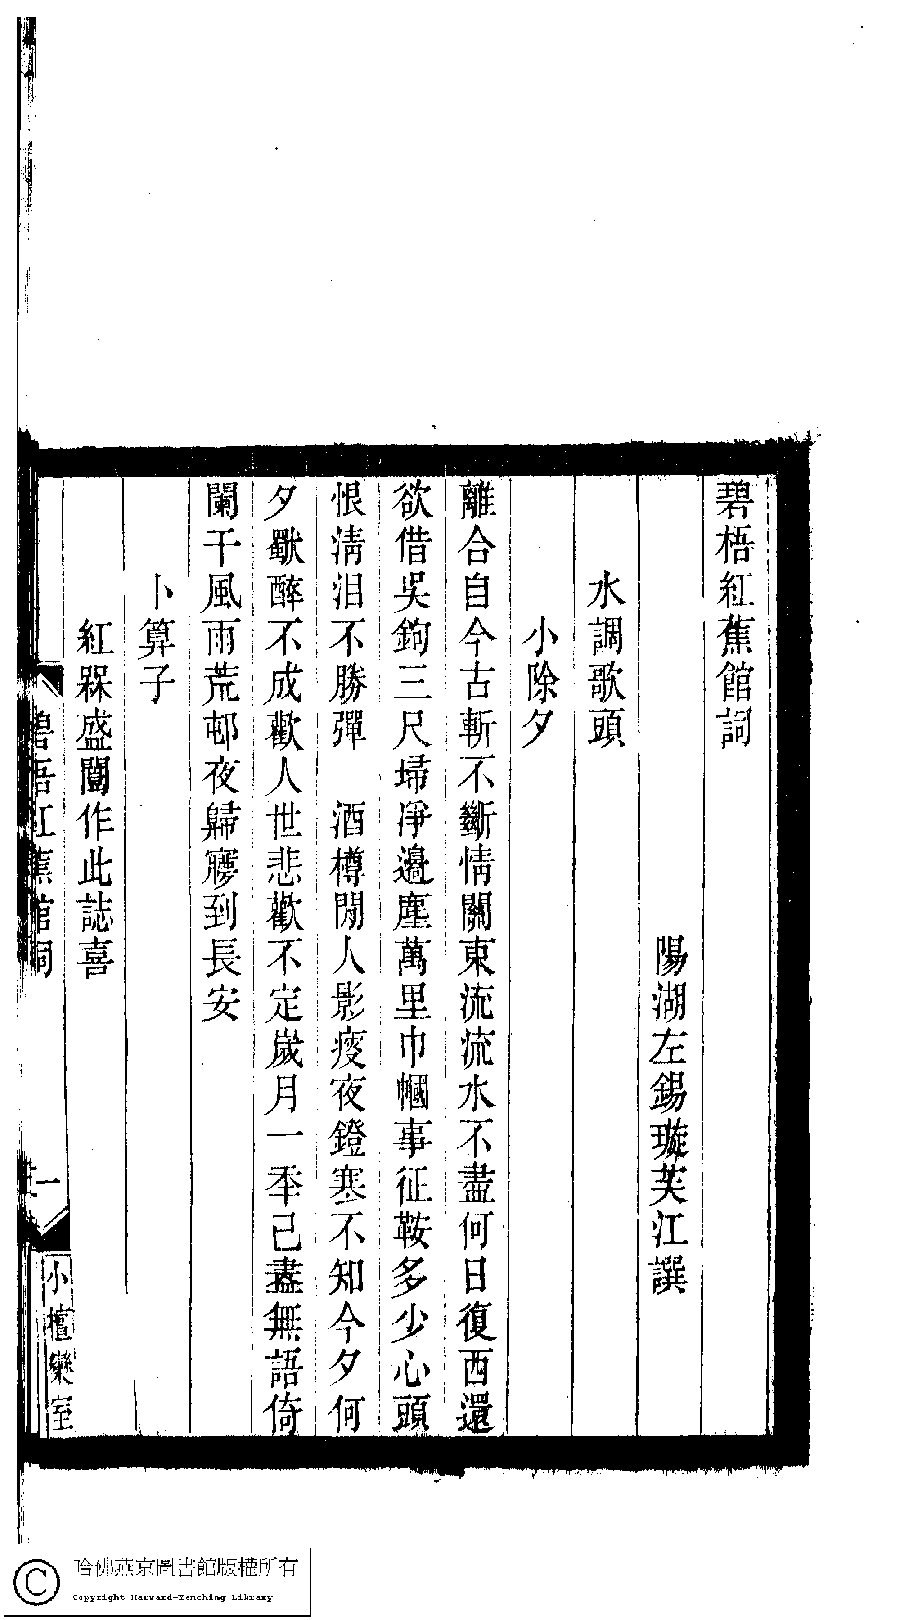 碧梧紅蕉館詞
陽湖左錫璇芙江譔
水調歌頭
小除夕
離合自今古斬不斷情關東流流水不盡何日復西還
欲借吳鉤三尺埽淨邊塵萬里巾幗事征鞍多少心頭
恨清泪不勝彈　酒樽閒人影瘦夜鐙寒不知今夕何
夕歡醉不成歡人世悲歡不定歲月一年已盡無語倚
闌干風雨荒邨夜歸夢到長安
卜算子
紅槑盛開作此誌喜
碧梧紅蕉館詞
一
小檀欒室
哈佛燕京圖書館版權所有
Copyright Harvard-Yenching Library